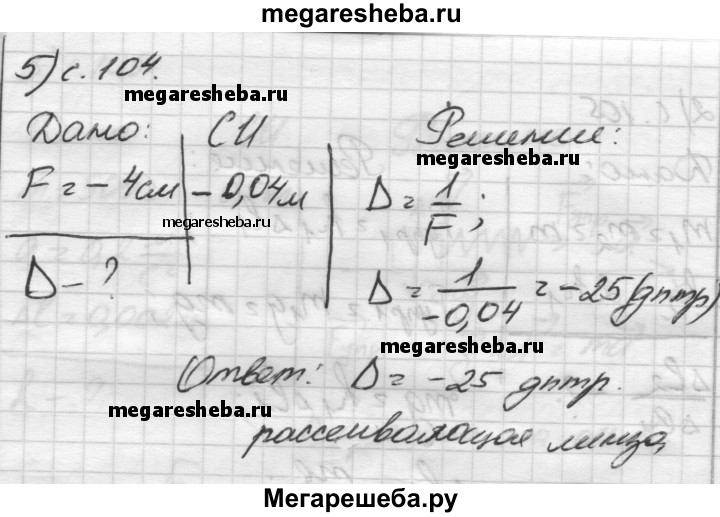 megaresheba.ru
5) с. 104.
megaresheba.ru
Дано: СИ Решение:
megaresheba.ru
F = - 4 см - 0,04 м D = 1/F;
megaresheba.ru
D - ? D = 1/-0,04 = -25 (дптр)
megaresheba.ru
Ответ: D = -25 дптр.
megaresheba.ru
рассеивающая линза
megaresheba.ru
Мегарешеба.ру